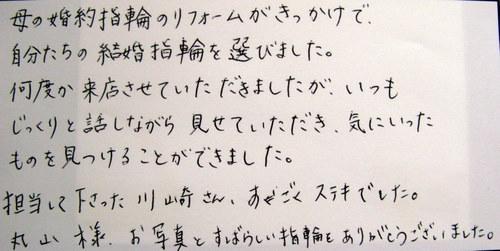 母の婚約指輪のリフォームがきっかけで、
自分たちの結婚指輪を選びました。
何度か来店させていただきましたが、いつも
じっくりと話しながら見せていただき、気にいった
ものを見つけることができました。
担当して下さった川崎さん、すごくステキでした。
丸山様、お写真とすばらしい指輪をありがとうございました。